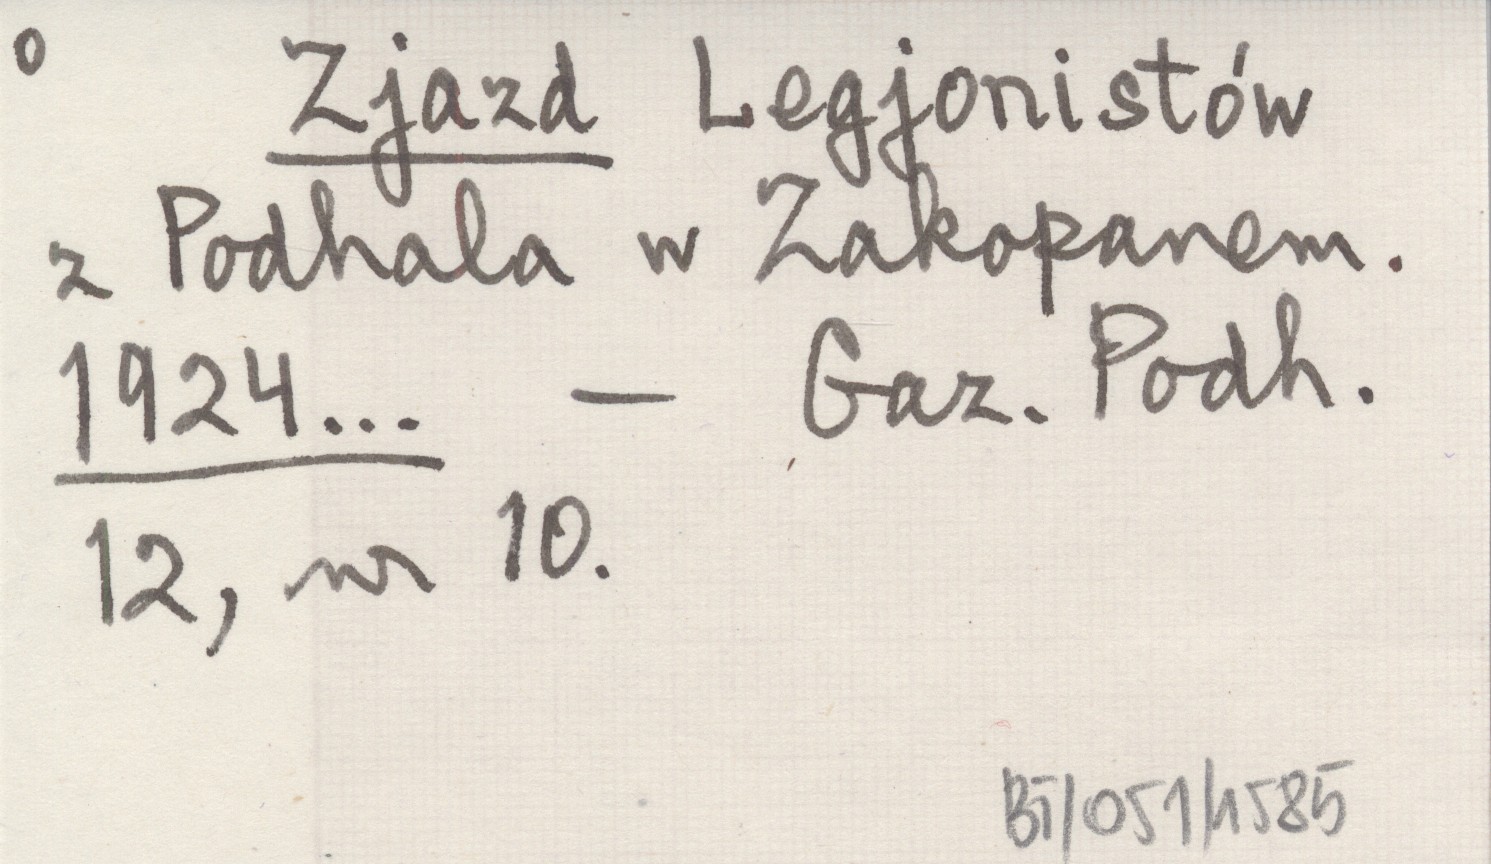 o
Zjazd Legjonistów
z Podhala w Zakopanem.
1924... — Gaz. Podh.
12, nr 10.
BT/051/1585